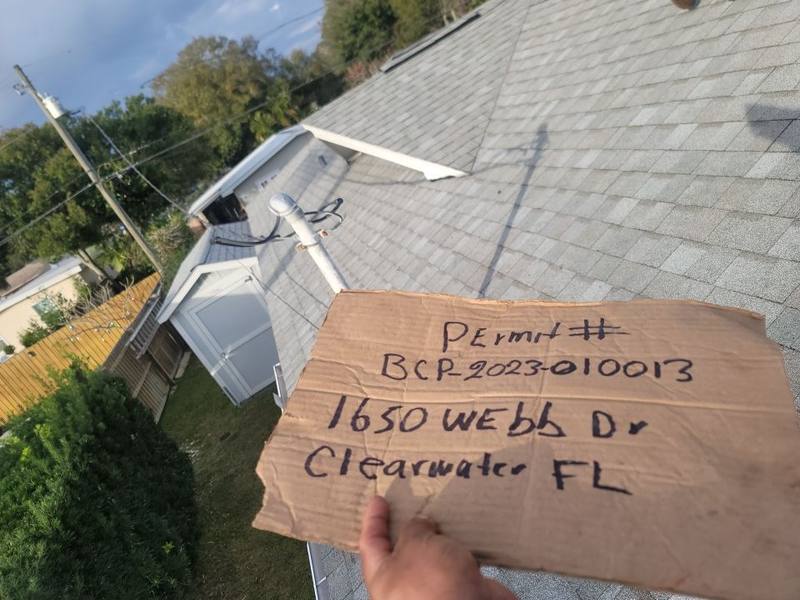 PErmit #
BCP-2023-010013
1650 WEbb Dr
Clearwater FL